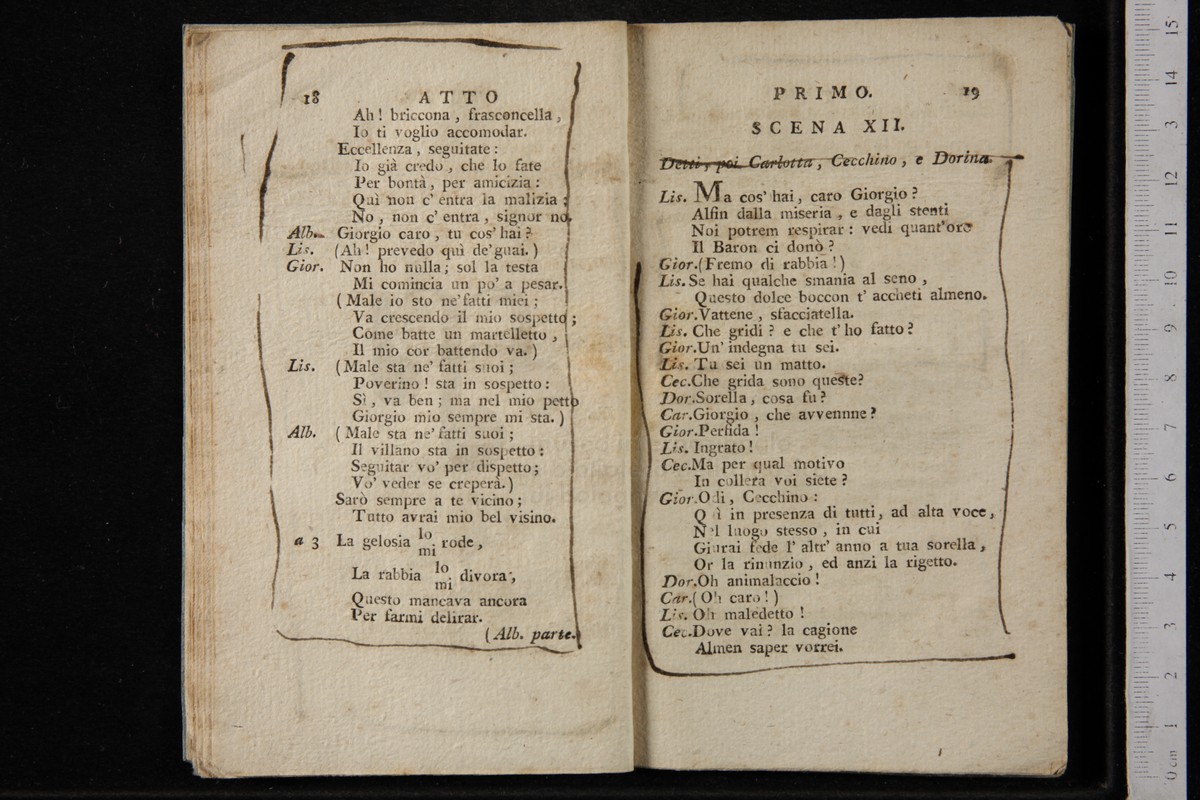 18 ATTO
Ah! briccona, frasconcella,
Io ti voglio accomodar.
Eccellenza, seguitate:
Io già credo, che lo fate
Per bontà, per amicizia:
Quì non c'entra la malizia;
No, non c'entra, signor no.
Alb. Giorgio caro, tu cos'hai?
Lis. (Ah! prevedo quì de'guai.)
Gior. Non ho nulla; sol la testa
Mi comincia un po' a pesar.
(Male io sto ne'fatti miei;
Va crescendo il mio sospetto;
Come batte un martelletto,
Il mio cor battendo va.)
Lis. (Male sta ne' fatti suoi;
Poverino! sta in sospetto:
Sì, va ben; ma nel mio petto
Giorgio mio sempre mi sta.)
Alb. (Male sta ne' fatti suoi;
Il villano sta in sospetto:
Seguitar vo' per dispetto;
Vo' veder se creperà.)
Sarò sempre a te vicino;
Tutto avrai mio bel visino.
a 3 La gelosia lo mi rode,
La rabbia lo mi divora,
Questo mancava ancora
Per farmi delirar.
(Alb. parte.
PRIMO. 19
SCENA XII.
Detti, poi Carlotta, Cecchino, e Dorina.
Lis. Ma cos' hai, caro Giorgio?
Alfin dalla miseria, e dagli stenti
Noi potrem respirar: vedi quant'oro
Il Baron ci donò?
Gior. (Fremo di rabbia!)
Lis. Se hai qualche smania al seno,
Questo dolce boccon t' accheti almeno.
Gior. Vattene, sfacciatella.
Lis. Che gridi? e che t' ho fatto?
Gior. Un' indegna tu sei.
Lis. Tu sei un matto.
Cec. Che grida sono queste?
Dor. Sorella, cosa fu?
Car. Giorgio, che avvennne?
Gior. Perfida!
Lis. Ingrato!
Cec. Ma per qual motivo
In collera voi siete?
Gior. Odi, Cecchino:
Quì in presenza di tutti, ad alta voce,
Nel luogo stesso, in cui
Giurai fede l' altr' anno a tua sorella,
Or la rinunzio, ed anzi la rigetto.
Dor. Oh animalaccio!
Car. (Oh caro!)
Lis. Oh maledetto!
Cec. Dove vai? la cagione
Almen saper vorrei.
0 cm 1 2 3 4 5 6 7 8 9 10 11 12 3 14 15